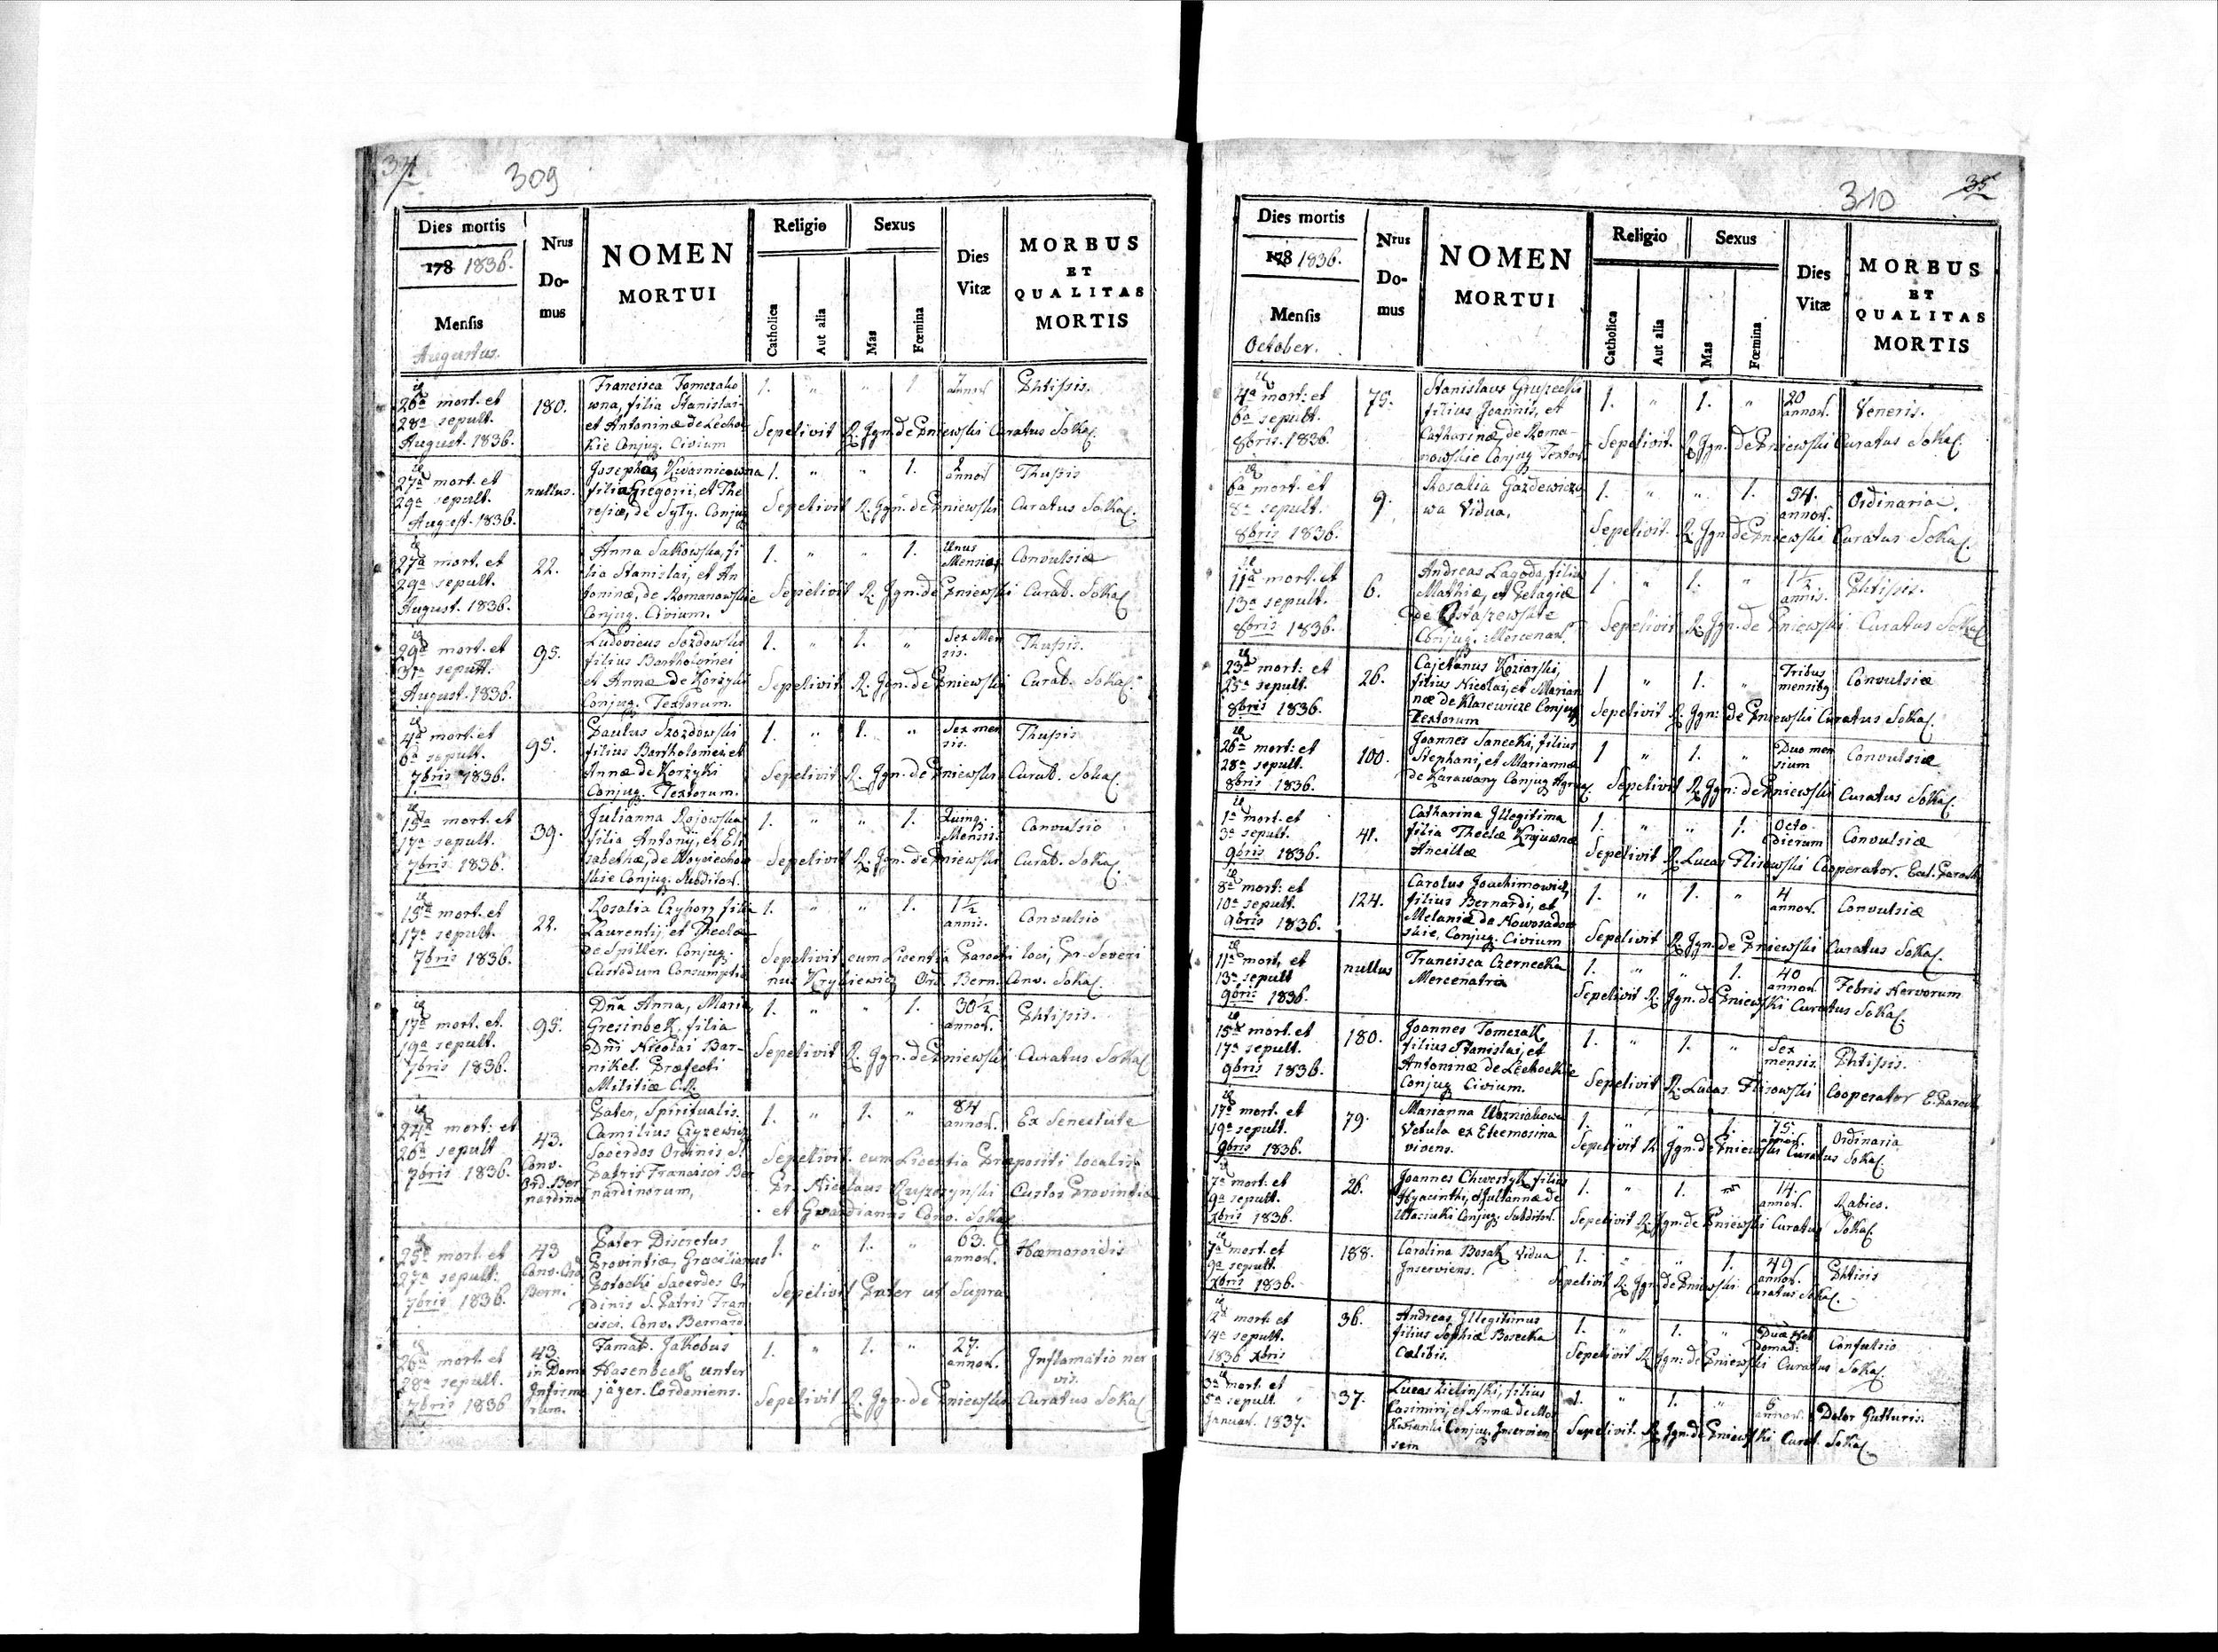 34
309
Dies mortis
178 1836.
Mensis
Augustus.
Nrus
Do-
mus
NOMEN
MORTUI
Religio
Catholica
Aut alia
Sexus
Mas
Fœmina
Dies
Vitæ
MORBUS
ET
QUALITAS
MORTIS
26a mort. et
28a sepult.
August. 1836.
180.
Francisca Tomczako
wna, filia Stanislai
et Antoninæ de Lechoc
kie Conjug. Civium
1. " " 1
annor
Phtisis.
Sepelivit R. Ign. de Pniewski Curatus Sokal.
27a mort. et
29a sepult.
August. 1836.
nullus.
Josepha Kwasnicowna
filia Gregorii, et The
resiæ, de Syty. Conjug
1. " " 1.
2
annor
Thussis
Sepelivit R. Ign. de Pniewski Curatus Sokal.
27a mort. et
29a sepult.
August. 1836.
22.
Anna Sakowska, fi
lia Stanislai, et An
toninæ, de Romanowskie
Conjug. Civium.
1. " " 1.
Unus
Mensis
Convulsio
Sepelivit R. Ign. de Pniewski Curat. Sokal
29a mort. et
31a sepult.
August. 1836.
95.
Ludovicus Szozdowski
filius Bartholomei
et Annæ de Korzyki
Conjug. Textorum.
1. " 1. "
Sex Men
sis.
Thussis.
Sepelivit R. Ign. de Pniewski Curat. Sokal.
4a mort. et
6a sepult.
7bris 1836.
95.
Paulus Szozdowski
filius Bartholomei et
Annæ de Korzyki
Conjug. Textorum.
1. " 1. "
Sex men
sis.
Thussis
Sepelivit R. Ign. de Pniewski Curat. Sokal.
15a mort. et
17a sepult.
7bris 1836.
39.
Julianna Rojowska
filia Antonij, et Eli
sabethæ, de Woyciechow
skie Conjug. Subditor.
1. " " 1.
Quinq.
Mensis
Convulsio
Sepelivit R. Ign. de Pniewski Curat. Sokal.
15a mort. et
17a sepult.
7bris 1836.
22.
Rosalia Czyhorz filia
Laurentij, et Theclæ
de Spiller. Conjug.
Custodum Consumptio
1. " " 1.
1½
annis.
Convulsio
Sepelivit cum Licentia Parochi loci, Pr. Severi
nus Krykiewicz Ord. Bern. Conv. Sokal.
17a mort. et
19a sepult.
7bris 1836.
95.
Dna Anna, Maria
Gresinbek, filia
Dni Nicolai Bar-
nikel. Præfecti
Militiæ C.R.
1. " " 1.
30½
annor.
Phtisis.
Sepelivit R. Ign. de Pniewski Curatus Sokal
24a mort: et
26a sepult
7bris 1836.
43.
Conv.
Ord. Ber
nardino
Pater, Spiritualis.
Camilius Czyzewicz
Sacerdos Ordinis S.
Patris Francisci Ber
nardinorum,
1. " 1. "
84
annor.
Ex Senectute
Sepelivit cum Licentia Præpositi localis
Pr. Nicolaus Ruszczynski Custos Provintiæ
et Gwardianus Conv. Sokal
25a mort. et
27a sepult:
7bris 1836.
43
Conv. Ord
Bern.
Pater Discretus
Provintiæ, Gracilianus
Potocki Sacerdos Or
dinis S. Patris Fran
cisci. Conv. Bernard.
1. " 1. "
63.
annor.
Hæmoroidis
Sepelivit Pater ut Supra
26a mort. et
28a sepult.
7bris 1836
43.
in Dom
Infirmo
rum.
Famat. Jakobus
Hasenbeck unter
jäger. Cordoniens.
1. " 1. "
27.
annor.
Inflamatio ner
vis.
Sepelivit R. Ign. de Pniewski Curatus Sokal
310
35
Dies mortis
178 1836.
Mensis
October.
Nrus
Do-
mus
NOMEN
MORTUI
Religio
Catholica
Aut alia
Sexus
Mas
Fœmina
Dies
Vitæ
MORBUS
ET
QUALITAS
MORTIS
4a mort: et
6a sepult.
8bris. 1836.
75.
Stanislaus Gruszecki
filius Joannis, et
Catharinæ, de Roma-
nowskie Conjug Textor.
1. " 1. "
20
annor.
Veneris.
Sepelivit. R. Ign. de Pniewski Curatus Sokal.
6a mort. et
8a sepult.
8bris 1836.
9.
Rosalia Gazdewiczo
wa Vidua.
1. " " 1.
54.
annor.
Ordinaria.
Sepelivit. R. Ign. de Pniewski Curatus Sokal.
11a mort. et
13a sepult.
8bris 1836.
6.
Andreas Lagoda, filius
Mathiæ, et Pelagiæ
de Ostaszewskie
Conjug. Mercenar.
1. " 1. "
1½
annis.
Phtisis.
Sepelivit R. Ign. de Pniewski Curatus Sokal
23a mort: et
25a sepult.
8bris 1836.
26.
Cajetanus Koziarski,
filius Nicolai, et Marian
næ de Klarewicze Conjug
Textorum
1 " 1. "
Tribus
mensibq
Convulsiæ
Sepelivit R. Ign: de Pniewski Curatus Sokal.
26a mort: et
28a sepult.
8bris 1836.
100.
Joannes Sanecki, filius
Stephani, et Mariannæ
de Karawany Conjug Agric.
1 " 1. "
Duo men
sium
Convulsiæ
Sepelivit R Ign: de Pniewski Curatus Sokal.
1a mort. et
3a sepult.
9bris 1836.
41.
Catharina Illegitima
filia Theclæ Krajuwnæ
Ancillæ
1. " " 1.
Octo
dierum
Convulsiæ
Sepelivit R. Lucas Flisowski Cooperator. Exl. Paroch
8a mort: et
10a sepult.
9bris 1836.
124.
Carolus Joachimowicz,
filius Bernardi, et
Melaniæ de Nowosadow
skie, Conjug. Civium
1. " 1. "
4
annor.
Convulsiæ
Sepelivit R Ign. de Pniewski Curatus Sokal.
11a mort, et
13a sepult
9bris 1836.
nullus
Francisca Czernecka
Mercenatria
1. " " 1.
40
annor.
Febris Nervorum
Sepelivit R. Ign. de Pniewski Curatus Sokal.
15a mort. et
17a sepult.
9bris 1836.
180.
Joannes Tomczak
filius Stanislai, et
Antoninæ de Lechockie
Conjug Civium.
1. " 1. "
Sex
mensis.
Phtisis.
Sepelivit R. Lucas Flisowski Cooperator E. Paroch
17a mort. et
19a sepult.
9bris 1836.
79.
Marianna Wozniakowa
Vetula ex Eleemosina
vivens.
1. " " 1.
75.
annor.
Ordinaria
Sepelivit R. Ign. de Pniewski Curatus Sokal.
7a mort. et
9a sepult.
Xbris 1836.
26.
Joannes Chwestyk filius
Hyacinthi, et Juliannæ de
Conjug. Subditor.
1. " 1. "
14.
annor.
Rabies.
Sepelivit R. Ign. de Pniewski Curatus Sokal.
7a mort. et
9a sepult.
Xbris 1836.
188.
Carolina Bosak Vidua
Inserviens.
1. " " 1.
49
annor.
Phtisis
Sepelivit R. Ign. de Pniewski Curatus Sokal.
12a mort. et
14a sepult.
1836 Xbris
36.
Andreas Illegitimus
filius Sophiæ Bosecka
Cælibis.
1. " 1. "
Duæ Heb
domad:
Confulsio
Sepelivit R. Ign: de Pniewski Curatus Sokal.
3a mort. et
5a sepult.
Januar. 1837.
37.
Lucas Zielinski, filius
Casimiri, et Annæ de Mos
Conjug. Inservien
sein
1. " 1. "
6
annor.
Dolor Gutturis.
Sepelivit. R. Ign. de Pniewski Curat. Sokal.